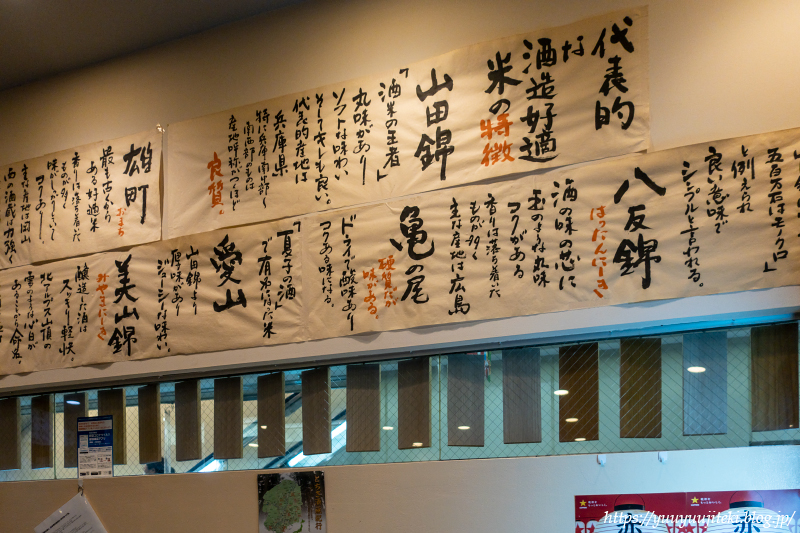 代表的
な
酒造好適
米の特徴
山田錦
「酒米の王者」
丸味があり
ソフトな味わい
代表的産地は
兵庫県
特に兵庫南部く
良質。
雄町
おまち
最も古くから
ある好適米
香りは落ち着いた
ものが多く
味がしっかりしていて
コクあり
主な産地は岡山
「五百万石はモーツァルト」
と例えられ
良い意味で
シンプルと言われる。
八反錦
はったんにしき
酒の味の芯に
玉のような丸味
コクがある
香りは落ち着いた
ものが多く
主な産地は広島
亀の尾
硬質だが
味がある。
ドライで酸味あり
コクある味になる。
「夏子の酒」
で有名になった米
愛山
山田錦より
厚味があり
ジューシーな味わい。
美山錦
みやまにしき
醸造した酒は
スッキリ軽快
北アルプス山頂の
雪のような心白が
あるから命名。
赤
赤
https://yuuyuujiteki.blog.jp/